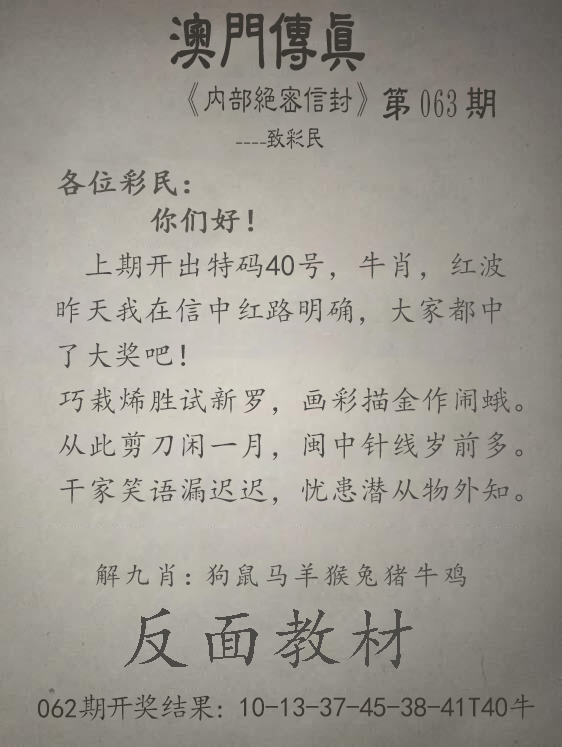 澳門傳眞
《内部絕密信封》第063期
----致彩民
各位彩民：
你们好！
上期开出特码40号，牛肖，红波
昨天我在信中红路明确，大家都中
了大奖吧！
巧栽烯胜试新罗，画彩描金作闹蛾。
从此剪刀闲一月，闺中针线岁前多。
千家笑语漏迟迟，忧患潜从物外知。
解九肖：狗鼠马羊猴兔猪牛鸡
反面教材
062期开奖结果：10-13-37-45-38-41T40牛